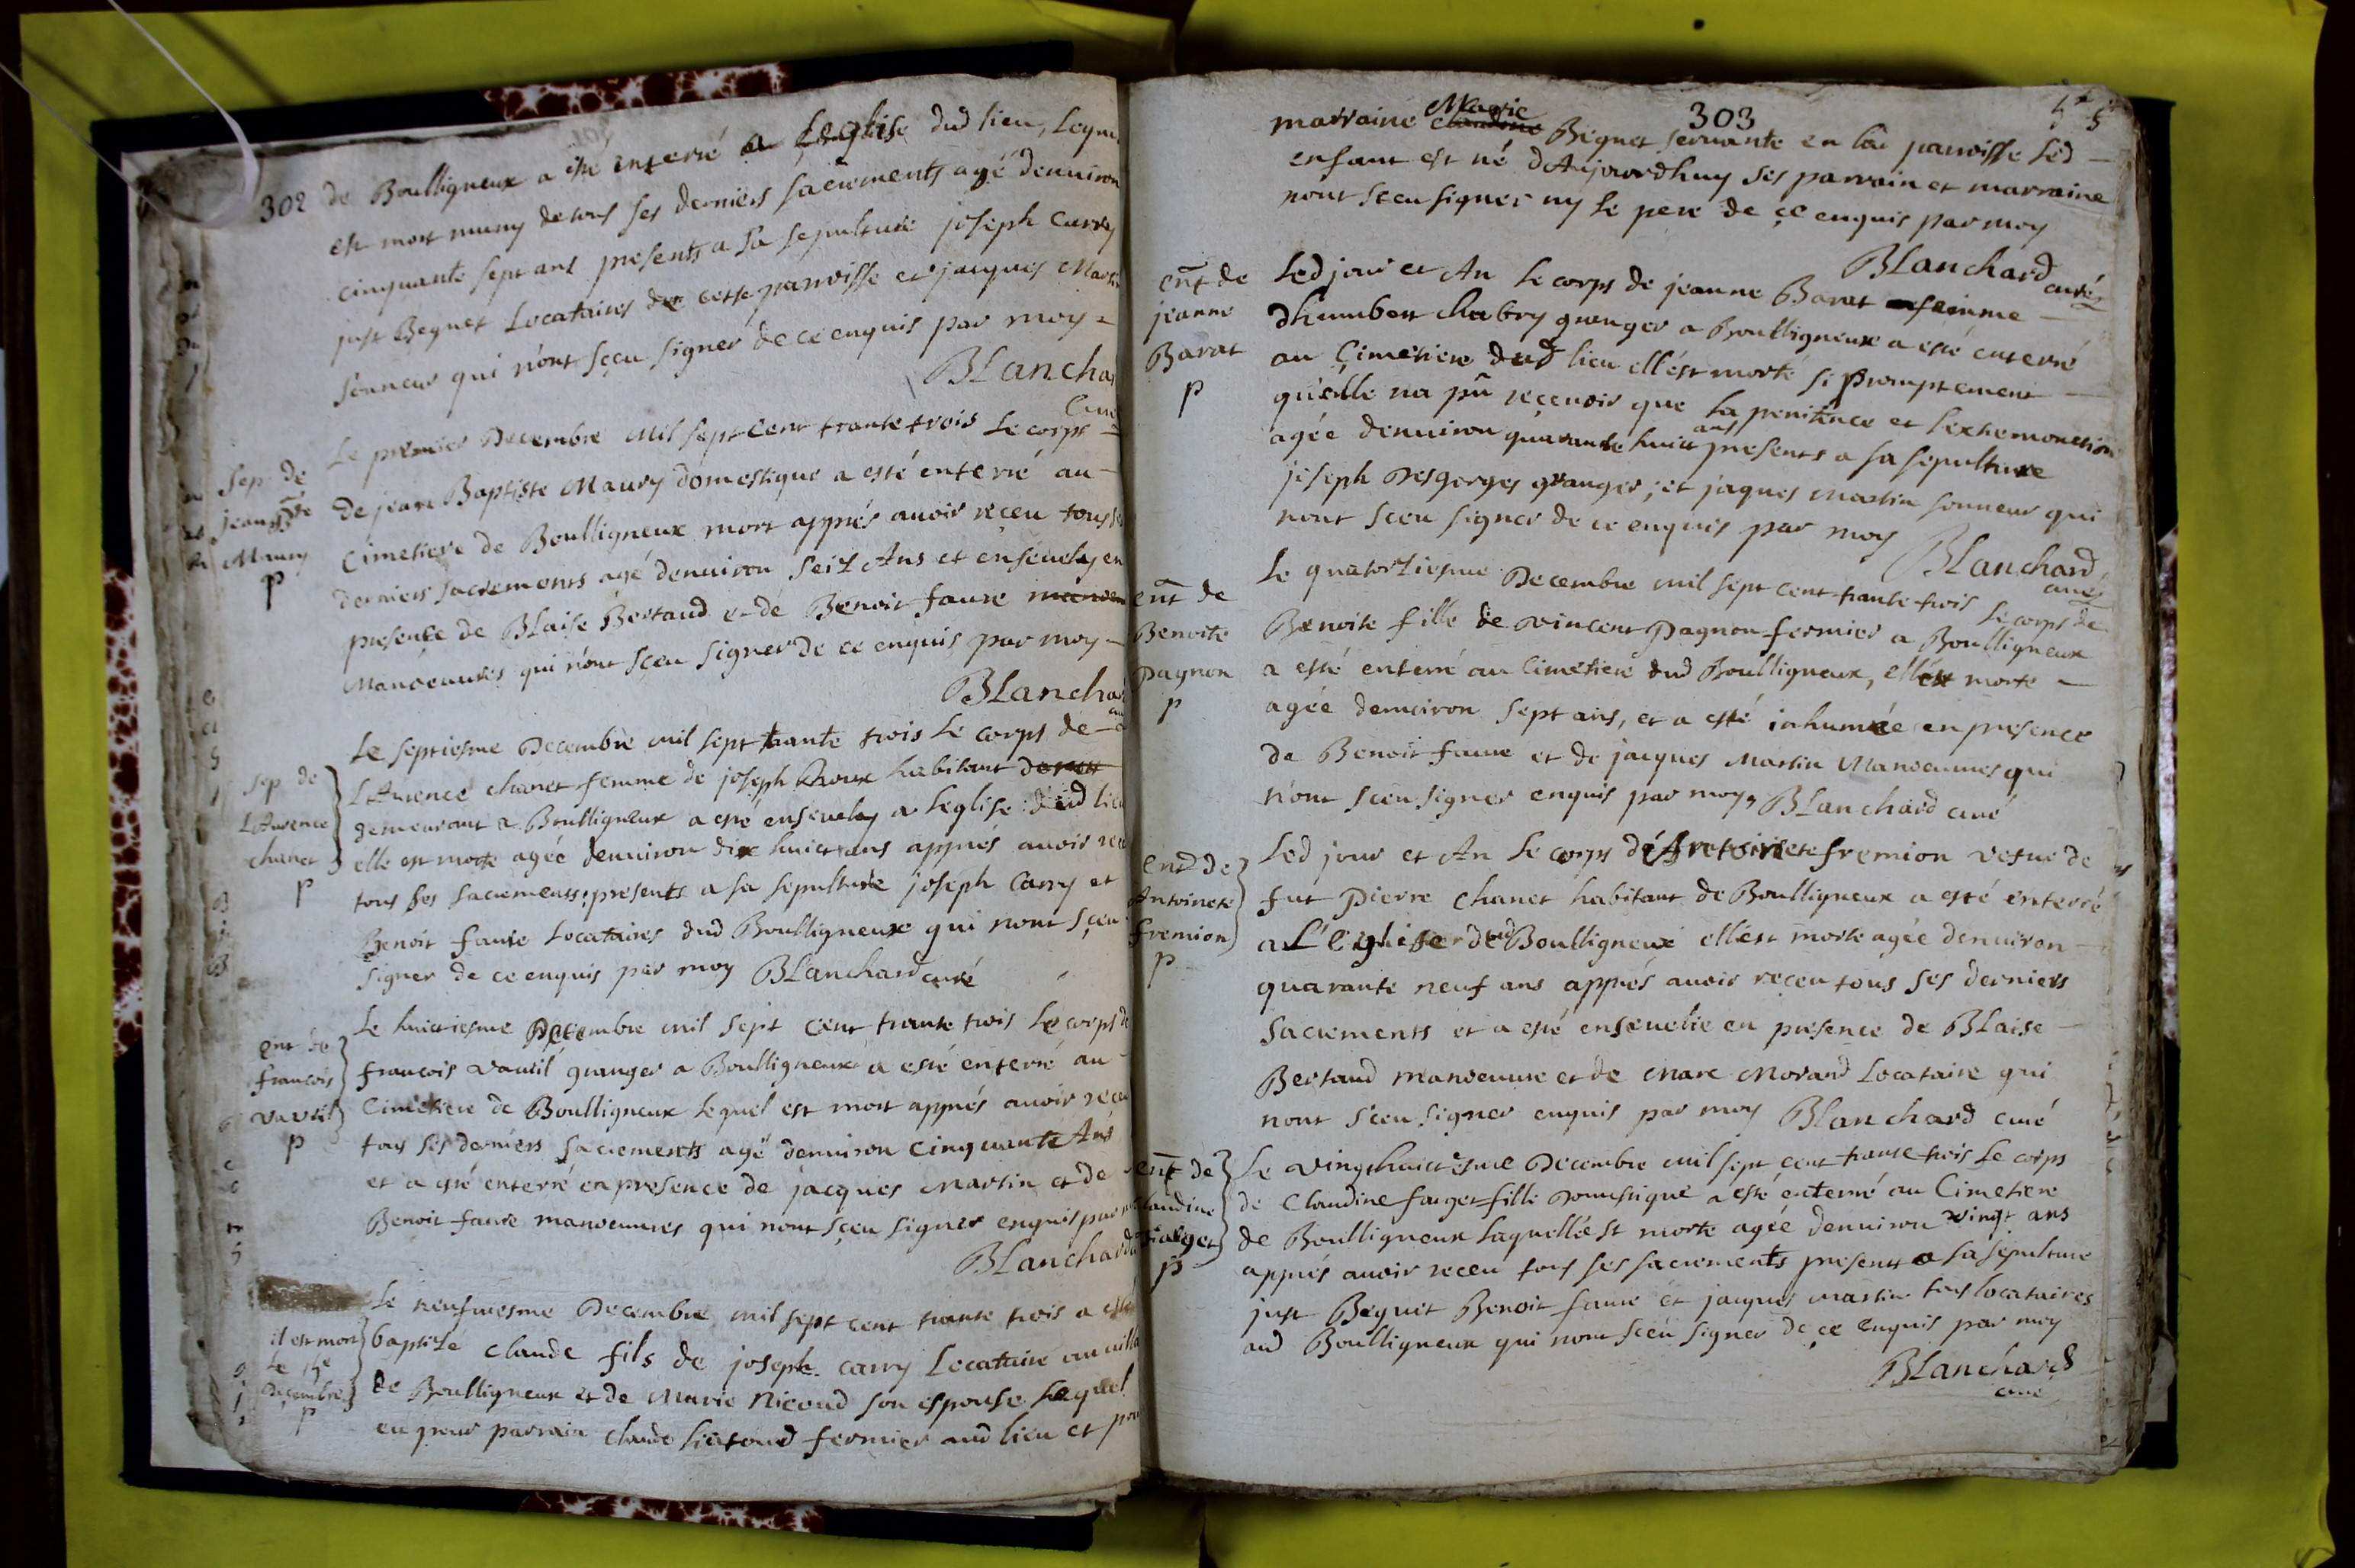 302 de Boulligneux a esté enterré a Leglise dud lieu, Leque
est mort muny de tous ses derniers sacrements agé denuiron
cinquante sept ans presents a sa sepulture joseph Carry
just Beguet Locataires de cette parroisse et jacques Mart
sonneur qui n'ont sçeu signer de ce enquis par moy
BLancha
Curé
Sep. de
jean Bte
Maury
p
Le premier Decembre mil sept cent trante trois Le corps
de jean Baptiste Maury domestique a esté enterré au
Cimetiere de Boulligneux mort apprés auoir reçeu tous
derniers sacrements agé denuiron seiz Ans et enseuely en
presençe de BLaise Bertaud et de Benoit faure
Manoeuures qui n'ont sçeu signer de ce enquis par moy
BLanchar
Sep de
LAurence
chanet
p
Le septiesme Decembre mil sept trante trois Le corps de
LAurence chanet femme de joseph Roux habitant
demeurant a Boulligneux a esté enseuely a Leglise dud lieu
elle est morte agée denuiron dix huict ans apprés auoir rece
tous ses sacrements; presents a sa sepulture joseph Carry et
Benoit faure Locataires dud Boulligneux qui nont sçeu
signer de ce enquis par moy BLanchard curé
ent de
francois
vavril
p
Le huictiesme Decembre mil sept cent trante trois Le corps de
francois vavril granger a Boulligneux a esté enterré au
Cimetiere de Boulligneux lequel est mort apprés auoir receu
tous ses derniers sacrements agé denuiron cinquante Ans
et a esté enterré en presence de jacques Martin et de
Benoit faure manoeuures qui nont sçeu signer enquis par
BLanchard
il est mort
Le
Decembre
p
Le neufuiesme Decembre mil sept cent trante trois a esté
baptizé claude fils de joseph carry Locataire au
de Boulligneux et de Marie Nicoud son espouse Lequel
eu pour parrain claude fermier aud lieu et pou
303
marraine Marie claudine Beguet seruante en lad parroisse Led
enfant est né dAujourdhuy ses parrain et marraine
nont sceu signer ny le pere de çe enquis par moy
BLanchard
curé
ent de
jeanne
Barat
p
Led jour et An Le corps de jeanne Barat femme
dhumbert chabry granger a Boulligneux a esté enterré
au Çimetiere dud lieu ellest morte si promptement
qu'elle na pû reçeuoir que La penitence et Lextremonction
agée denuiron quarante huict ans presents a sa sepulture
joseph Desgorges granger; et jaques Martin sonneur qui
nont sceu signer de ce enquis par moy
BLanchard
curé
ent de
Benoite
Pagnon
p
Le quatorziesme Decembre mil sept cent trante trois Le corps de
Benoite fille de vincent Pagnon fermier a Boulligneux
a esté enterré au Cimetiere dud Boulligneux, ellest morte
agée denuiron sept ans, et a esté inhumée en presence
de Benoit faure et de jacques Martin Manoeuures qui
n'ont sceu signer enquis par moy, BLanchard curé
ent de
Antoinete
fremion
p
Led jour et An Le corps dAntoinete fremion vefue de
fut Pierre chanet habitant de Boulligneux a esté enterré
a L'eglise dud Boulligneux ellest morte agée denuiron
quarante neuf ans apprés auoir reçeu tous ses derniers
sacrements et a esté enseuelie en presence de BLaise
Bertaud manoeuure et de Marc Morand Locataire qui
nont sceu signer enquis par moy BLanchard curé
ent de
claudine
farget
p
Le vingthuictiesme Decembre mil sept çent trante trois Le corps
de Claudine farget fille Domestique a esté enterré au Cimetiere
de Boulligneux Laquellest morte agée denuiron vingt ans
apprés auoir receu tous ses sacrements presents a sa sepulture
just Beguet Benoit faure et jacques Martin tous Locataires
aud Boulligneux qui nont sceu signer de çe enquis par moy
BLanchard
curé